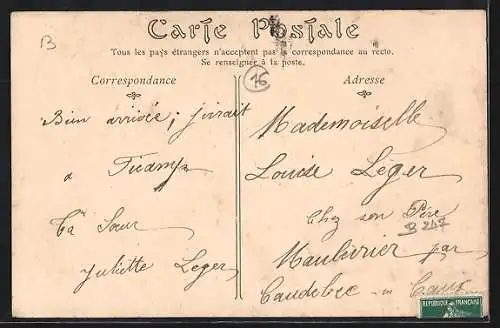 B
Carte Postale
Tous les pays étrangers n'acceptent pas la correspondance au recto.
Se renseigner à la poste.
16
Correspondance
Bien arrivée, j'irait
a Ficamp
Ta Sœur
Juliette Leger
Adresse
Mademoiselle
Louise Léger
Chez son Père
B 247
Maulévrier par
Caudebec en Caux
REPUBLIQUE FRANÇAISE